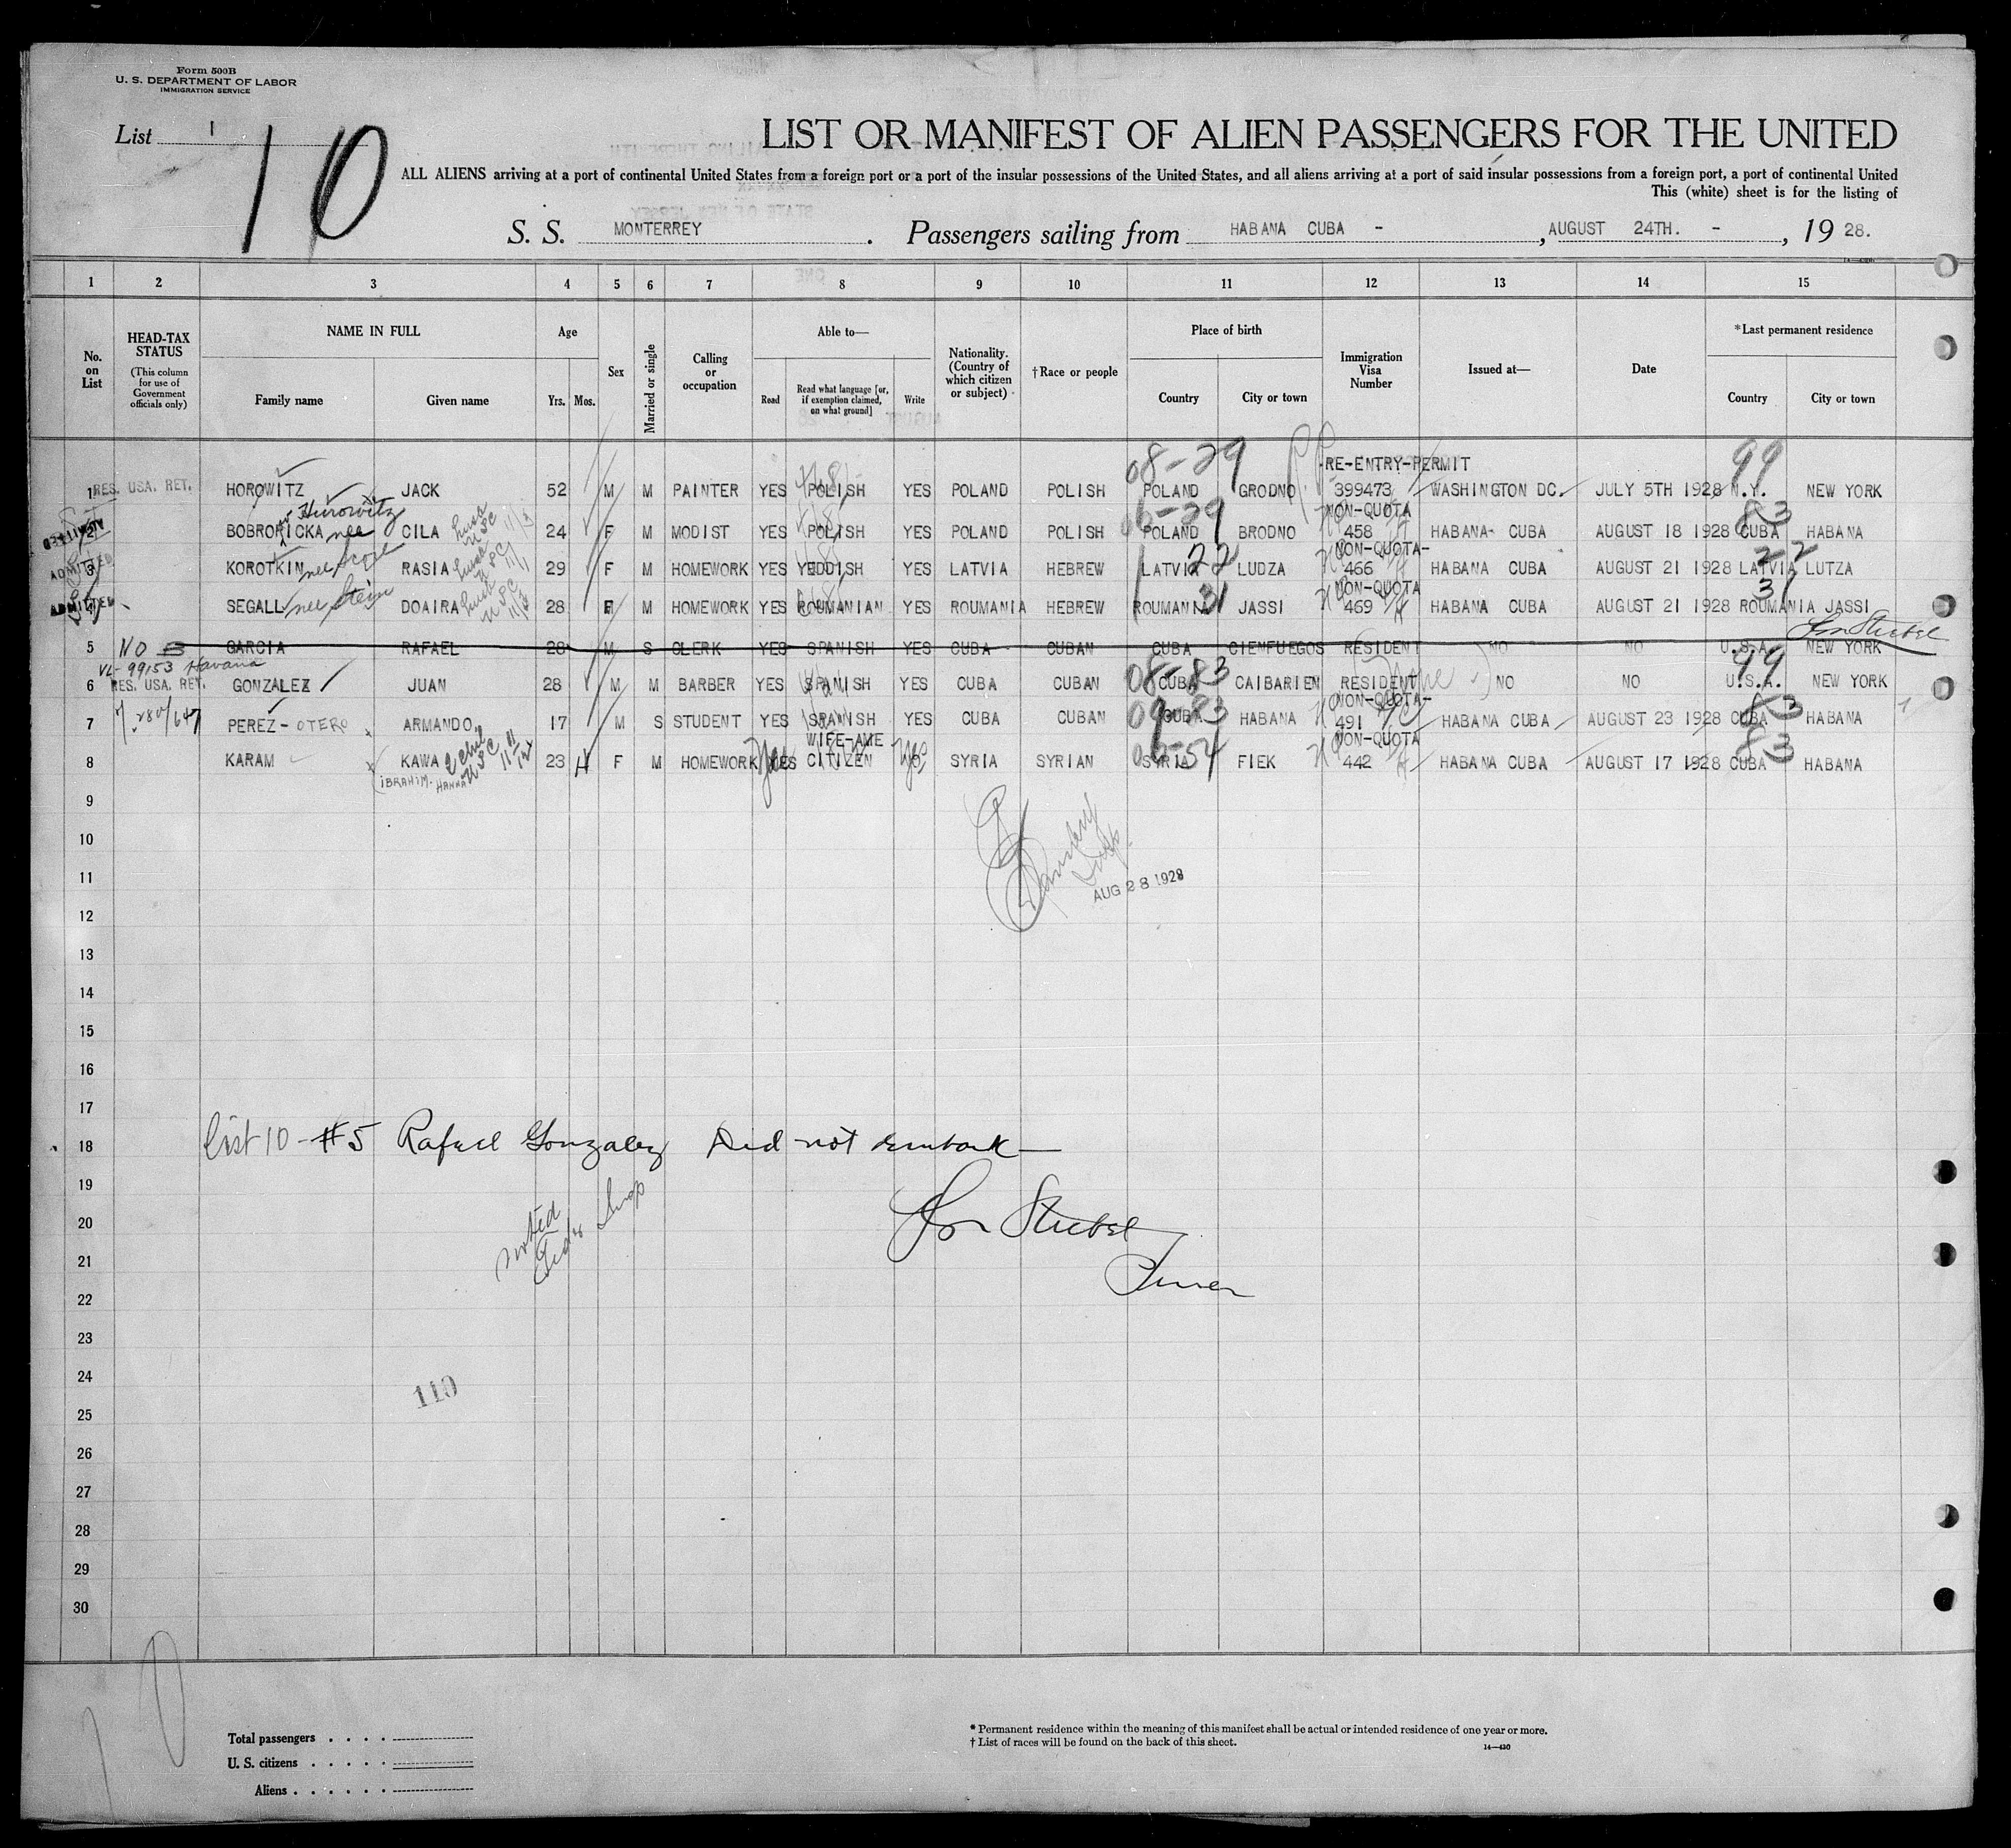 Form 500B
U. S. DEPARTMENT OF LABOR
IMMIGRATION SERVICE
List 1
10
LIST OR MANIFEST OF ALIEN PASSENGERS FOR THE UNITED
ALL ALIENS arriving at a port of continental United States from a foreign port or a port of the insular possessions of the United States, and all aliens arriving at a port of said insular possessions from a foreign port, a port of continental United
This (white) sheet is for the listing of
S. S. MONTERREY. Passengers sailing from HABANA CUBA -, AUGUST 24TH. -, 19 28.
1 2 3 4 5 6 7 8 9 10 11 12 13 14 15
No. on List
HEAD-TAX STATUS
(This column for use of Government officials only)
NAME IN FULL
Family name
Given name
Age
Yrs. Mos.
Sex
Married or single
Calling or occupation
Able to—
Read
Read what language [or, if exemption claimed, on what ground]
Write
Nationality. (Country of which citizen or subject)
†Race or people
Place of birth
Country
City or town
Immigration Visa Number
Issued at—
Date
*Last permanent residence
Country
City or town
08-29 RE-ENTRY-PERMIT 99
1 RES. USA. RET. HOROWITZ JACK 52 M M PAINTER YES POLISH YES POLAND POLISH POLAND GRODNO 399473 WASHINGTON DC. JULY 5TH 1928 N.Y. NEW YORK
Hurowitz NON-QUOTA 83
2 ADMITTED BOBRORICKA nee CILA 24 F M MODIST YES POLISH YES POLAND POLISH POLAND BRODNO 458 HABANA- CUBA AUGUST 18 1928 CUBA HABANA
NON-QUOTA- 22
3 ADMITTED KOROTKIN nee RASIA 29 F M HOMEWORK YES YEDDISH YES LATVIA HEBREW LATVIA 22 LUDZA 466 HABANA CUBA AUGUST 21 1928 LATVIA LUTZA
NON-QUOTA 31
4 ADMITTED SEGALL nee Stein DOAIRA 28 F M HOMEWORK YES ROUMANIAN YES ROUMANIA HEBREW ROUMANIA 31 JASSI 469 HABANA CUBA AUGUST 21 1928 ROUMANIA JASSI
5 NO GARCIA RAFAEL 28 M S CLERK YES SPANISH YES CUBA CUBAN CUBA CIENFUEGOS RESIDENT NO NO U.S.A. NEW YORK
VL- 99153 Havana 08-83 99
6 RES. USA. RET. GONZALEZ JUAN 28 M M BARBER YES SPANISH YES CUBA CUBAN CUBA CAIBARIEN RESIDENT NO NO U.S.A. NEW YORK
NON-QUOTA-
7 PEREZ - OTERO ARMANDO 17 M S STUDENT YES SPANISH YES CUBA CUBAN CUBA HABANA 491 HABANA CUBA AUGUST 23 1928 CUBA 83 HABANA
WIFE-AME NON-QUOTA
8 KARAM KAWA 23 F M HOMEWORK YES CITIZEN Yes SYRIA SYRIAN SYRIA FIEK 442 HABANA CUBA AUGUST 17 1928 CUBA 83 HABANA
IBRAHIM. HANNA
9
10
11
AUG 28 1928
12
13
14
15
16
17
18 List 10 - #5 Rafael Gonzalez Did not embark—
19
20
noted
21
22
23
24
110
25
26
27
28
29
30
Total passengers
U. S. citizens
Aliens
* Permanent residence within the meaning of this manifest shall be actual or intended residence of one year or more.
† List of races will be found on the back of this sheet.
14—430